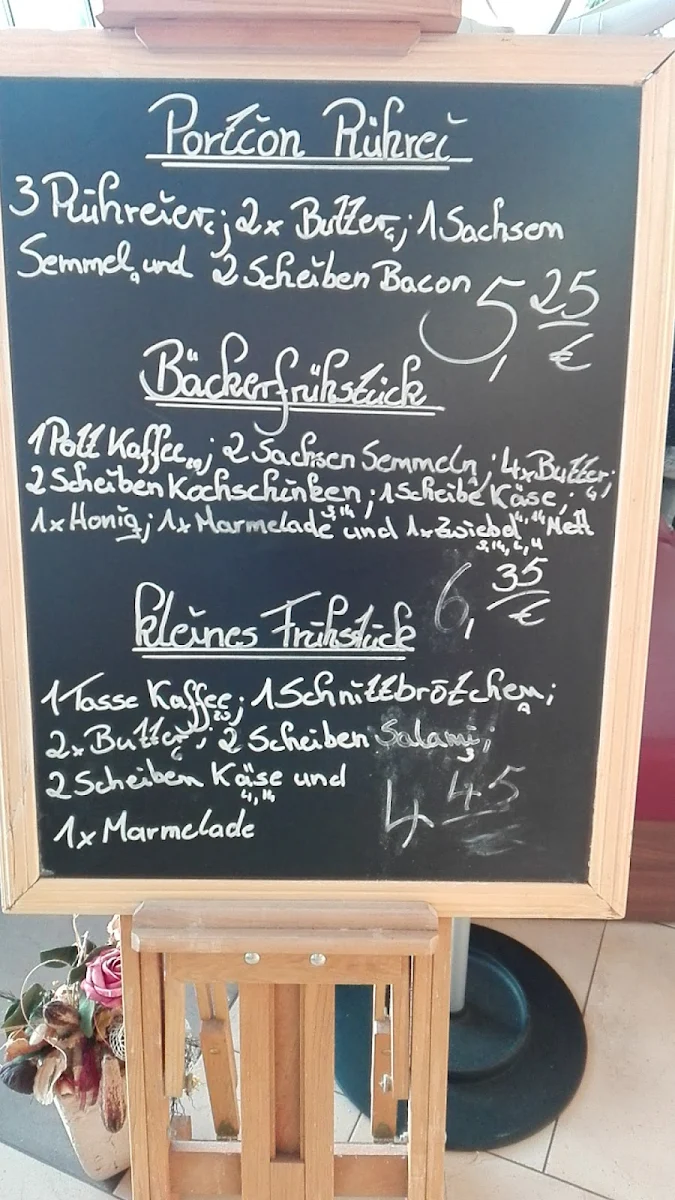 Portion Rührei
3 Rühreier; 2x Butter; 1 Sachsen
Semmel und 2 Scheiben Bacon
5,25 €
Bäckerfrühstück
1 Pott Kaffee; 2 Sachsen Semmeln; 4x Butter;
2 Scheiben Kochschinken; 1 Scheibe Käse;
1x Honig; 1x Marmelade und 1x Zwiebel Mett
6,35 €
kleines Frühstück
1 Tasse Kaffee; 1 Schnittbrötchen;
2x Butter; 2 Scheiben Salami;
2 Scheiben Käse und
4,14
1x Marmelade
4,45